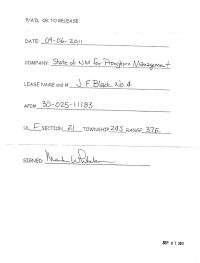 P/A'D, OK TO RELEASE
DATE: 09-06-2011
COMPANY: State of NM for Pronghorn Management
LEASE NAME and #: J F Black No. 4
API# 30-025-11183
UL F SECTION 21 TOWNSHIP 24S RANGE 37E
SIGNED
SEP 07 2011